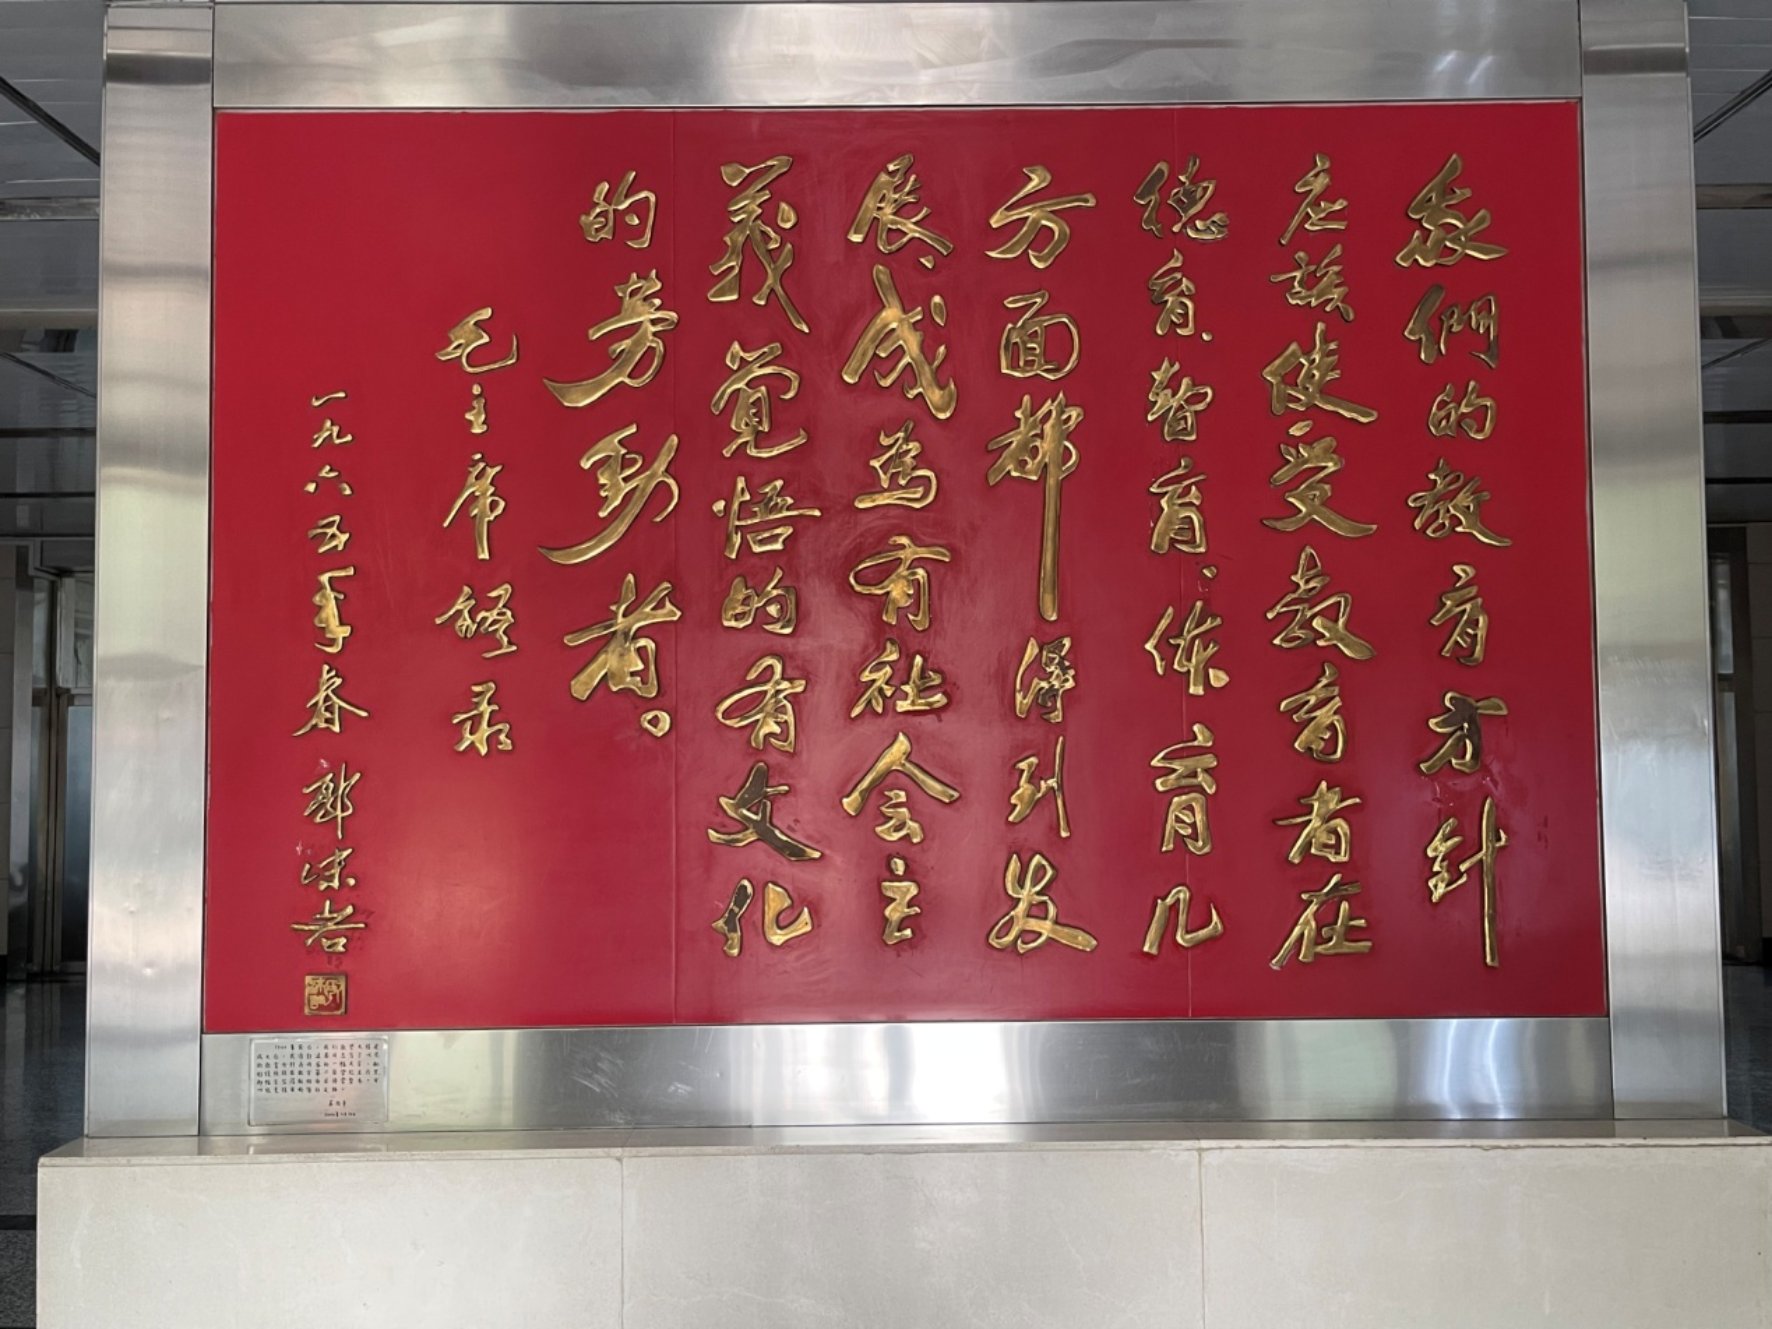 我們的教育方針
应該使受教育者在
德育、智育、体育几
方面都得到发
展、成为有社会主
義觉悟的有文化
的劳動者。
毛主席語录
一九六五年春 郭沫若